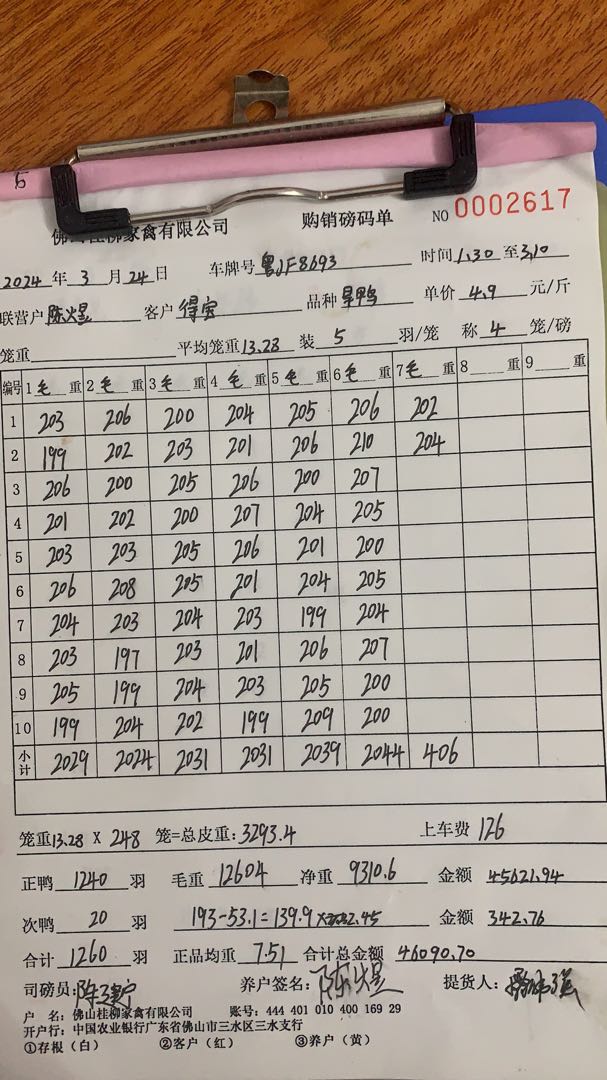 佛山桂柳家禽有限公司 购销磅码单 NO 0002617
2024 年 3 月 24 日 车牌号 粤JF8693 时间 1.30 至 3.10
联营户 陈火星 客户 得宝 品种 旱鸭 单价 4.9 元/斤
笼重 平均笼重 13.28 装 5 羽/笼 称 4 笼/磅
编号 1 毛 重 2 毛 重 3 毛 重 4 毛 重 5 毛 重 6 毛 重 7 毛 重 8 重 9 重
1 203 206 200 204 205 206 202
2 199 202 203 201 206 210 204
3 206 200 205 206 200 207
4 201 202 200 207 204 205
5 203 203 205 206 201 200
6 206 208 205 201 204 205
7 204 203 204 203 199 204
8 203 197 203 201 206 207
9 205 199 204 203 205 200
10 199 204 202 199 209 200
小计 2029 2024 2031 2031 2039 2044 406
笼重 13.28 X 248 笼=总皮重: 3293.4 上车费 126
正鸭 1240 羽 毛重 12604 净重 9310.6 金额 45621.94
次鸭 20 羽 193-53.1=139.9 金额 342.76
合计 1260 羽 正品均重 7.51 合计总金额 46090.70
司磅员: 养户签名: 陈火星 提货人:
户 名: 佛山桂柳家禽有限公司 账号: 444 401 010 400 169 29
开户行: 中国农业银行广东省佛山市三水区三水支行
①存根（白） ②客户（红） ③养户（黄）